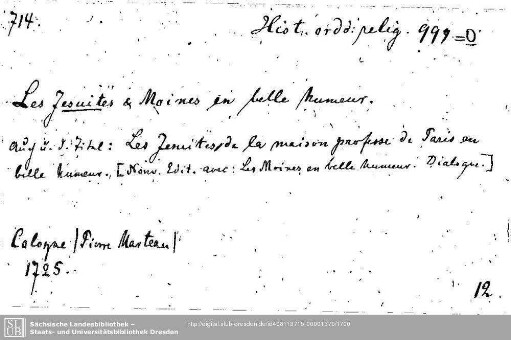 714.
Hist. ordd. relig. 999=0
Les Jesuites & Moines en belle humeur.
a. d. Titel: Les Jesuites de la maison professe de Paris en
belle humeur. [Nouv. Edit. avec: Les Moines en belle humeur. Dialogue.]
Cologne /Pierre Marteau/
1725.
12.
SLUB
Sächsische Landesbibliothek –
Staats- und Universitätsbibliothek Dresden